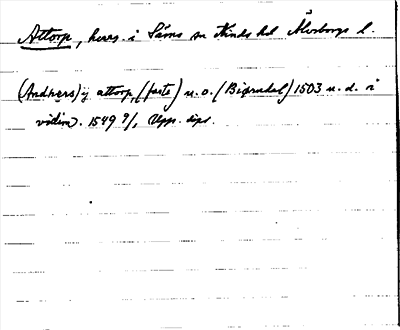 Attorp, hers. i Säms sn Kinds hd Älvsborgs l.
(Andhers) ÿ attorp, (faste) u.o. (Biørndal) 1503 u.d. i
vidim. 1549 9/, Upps. dipl.